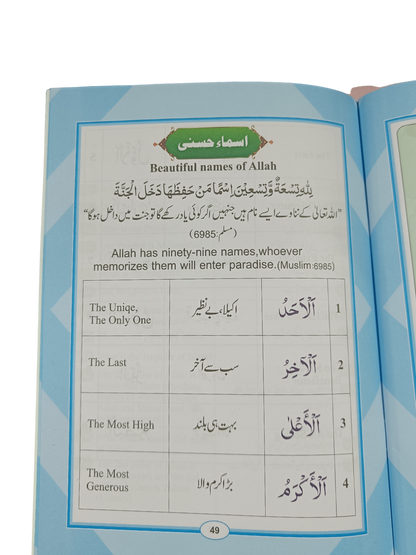 اسماء حسنی
Beautiful names of Allah
لِلّٰهِ تِسْعَةٌ وَّتِسْعِيْنَ اِسْمًا مَنْ حَفِظَهَا دَخَلَ الْجَنَّةَ
"اللہ تعالیٰ کے ننانوے ایسے نام ہیں جنہیں اگر کوئی یاد رکھے گا تو جنت میں داخل ہوگا"
(مسلم:6985)
Allah has ninety-nine names,whoever
memorizes them will enter paradise.(Muslim:6985)
1 اَلْاَحَدُ اکیلا، بے نظیر The Uniqe,
The Only One
2 اَلْاٰخِرُ سب سے آخر The Last
3 اَلْأَعْلٰى بہت ہی بلند The Most High
4 اَلْأَكْرَمُ بڑا کرم والا The Most
Generous
49